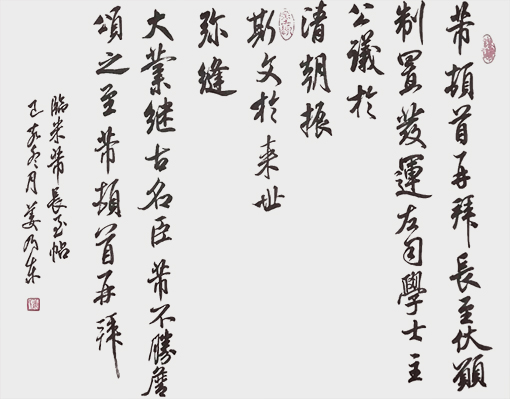 芾頓首再拜長至伏願
制置發運左司學士主
公議於
清朝振
斯文於来世
弥縫
大業継古名臣芾不勝詹
頌之至芾頓首再拜
临米芾長至帖
己亥冬月姜乃东